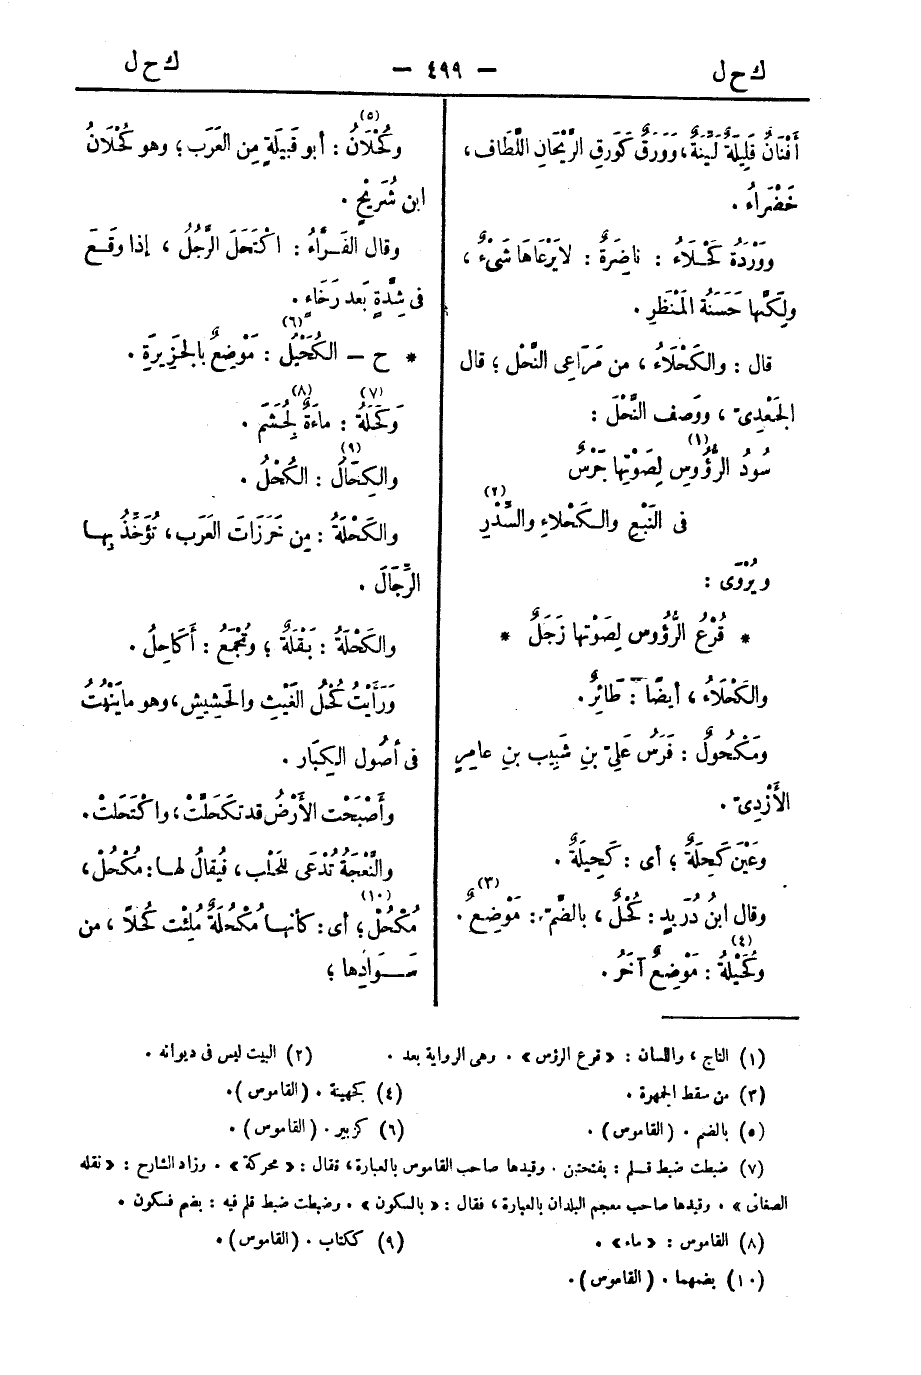 ك ح ل — ٤٩٩ — ك ح ل
أَفْنَانٌ قَلِيلَةٌ لَيِّنَةٌ، وَوَرَقٌ كَوَرَقِ الرَّيْحَانِ اللِّطَاف،
خَضْرَاءُ .
ووَرْدَةٌ كَحْلَاءُ : ناضِرَةٌ : لايَرْعَاهَا شَىْءٌ ،
ولكِنَّها حَسَنَةُ المَنْظَرِ .
قال : والكَحْلَاءُ ، من مَرَاعِى النَّحْل ؛ قال
الجَعْدِىّ ، ووَصَف النَّحْلَ :
سُودُ الرُّؤُوسِ لِصَوْتِها جَرْسٌ (١)
فى النَّبْعِ والكَحْلاءِ والسِّدْرِ (٢)
ويُرْوَى :
* قُرْعُ الرُّؤُوسِ لِصَوْتها زَجَلٌ *
والكَحْلَاءُ ، أيضًا : طَائِرٌ .
ومَكْحُولٌ : فَرَسُ عَلِىّ بنِ شَبِيب بنِ عامِرٍ
الأَزْدِىّ .
وعَيْنٌ كَحِلَةٌ ؛ أى : كَحِيلَةٌ .
وقال ابنُ دُرَيدٍ : كُحْلٌ ، بالضَّمّ : مَوْضِعٌ (٣) .
وكُحَيْلَةُ (٤) : مَوْضِعٌ آخَرُ .
وكُحْلَانُ (٥) : أبو قَبِيلَةٍ مِن العَرَب ؛ وهو كُحْلَانُ
ابن شُرَيْحٍ .
وقال الفَرَّاءُ : اكْتَحَلَ الرَّجُلُ ، إذا وقَعَ
فى شِدَّةٍ بَعد رَخَاءٍ .
* ح — الكُحَيْلُ (٦) : مَوْضِعٌ بالجَزِيرَةِ .
وكَحَلَةُ (٧) : ماءَةٌ لِجُشَمَ (٨) .
والكِحَالُ (٩) : الكُحْلُ .
والكَحْلَةُ : مِن خَرَزَاتَ العَرَب ، تُؤَخِّذُ بِهـا
الرِّجَالَ .
والكَحْلَةُ : بَقْلَةٌ ؛ وتُجْمَعُ : أَكَاحِلُ .
ورَأَيْتُ كُحْلُ الغَيْثِ والحَشِيشِ ، وهو مايَنْبُتُ
فى أصُول الكِبَار .
وأَصْبَحْت الأَرْضُ قد تَكَحَّلَتْ ، واكْتَحَلتْ .
والنَّعْجَةُ تُدْعَى للحَلْب ، فيُقالُ لهـا : مُكْحُلْ ،
مُكْحُلْ (١٠) ؛ أى : كأنها مُكْحُلَةٌ مُلِئت كُحلًا ، من
سَـوَادِها ؛
(١) التاج ، واللسان : « قرع الرؤس » . وهى الرواية بعد . (٢) البيت ليس فى ديوانه .
(٣) من سقط الجمهرة . (٤) كجهينة . (القاموس) .
(٥) بالضم . (القاموس) . (٦) كزبير . (القاموس) .
(٧) ضبطت ضبط قـلم : بفتحتين . وقيدها صاحب القاموس بالعبارة ، فقال : « محركة » . وزاد الشارح : « نقله
الصغانى » . وقيدها صاحب معجم البلدان بالعبارة ، فقال : « بالسكون » . وضبطت ضبط قلم فيه : بضم فسكون .
(٨) القاموس : « ماء » . (٩) ككتاب . (القاموس) .
(١٠) بضمهما . (القاموس) .